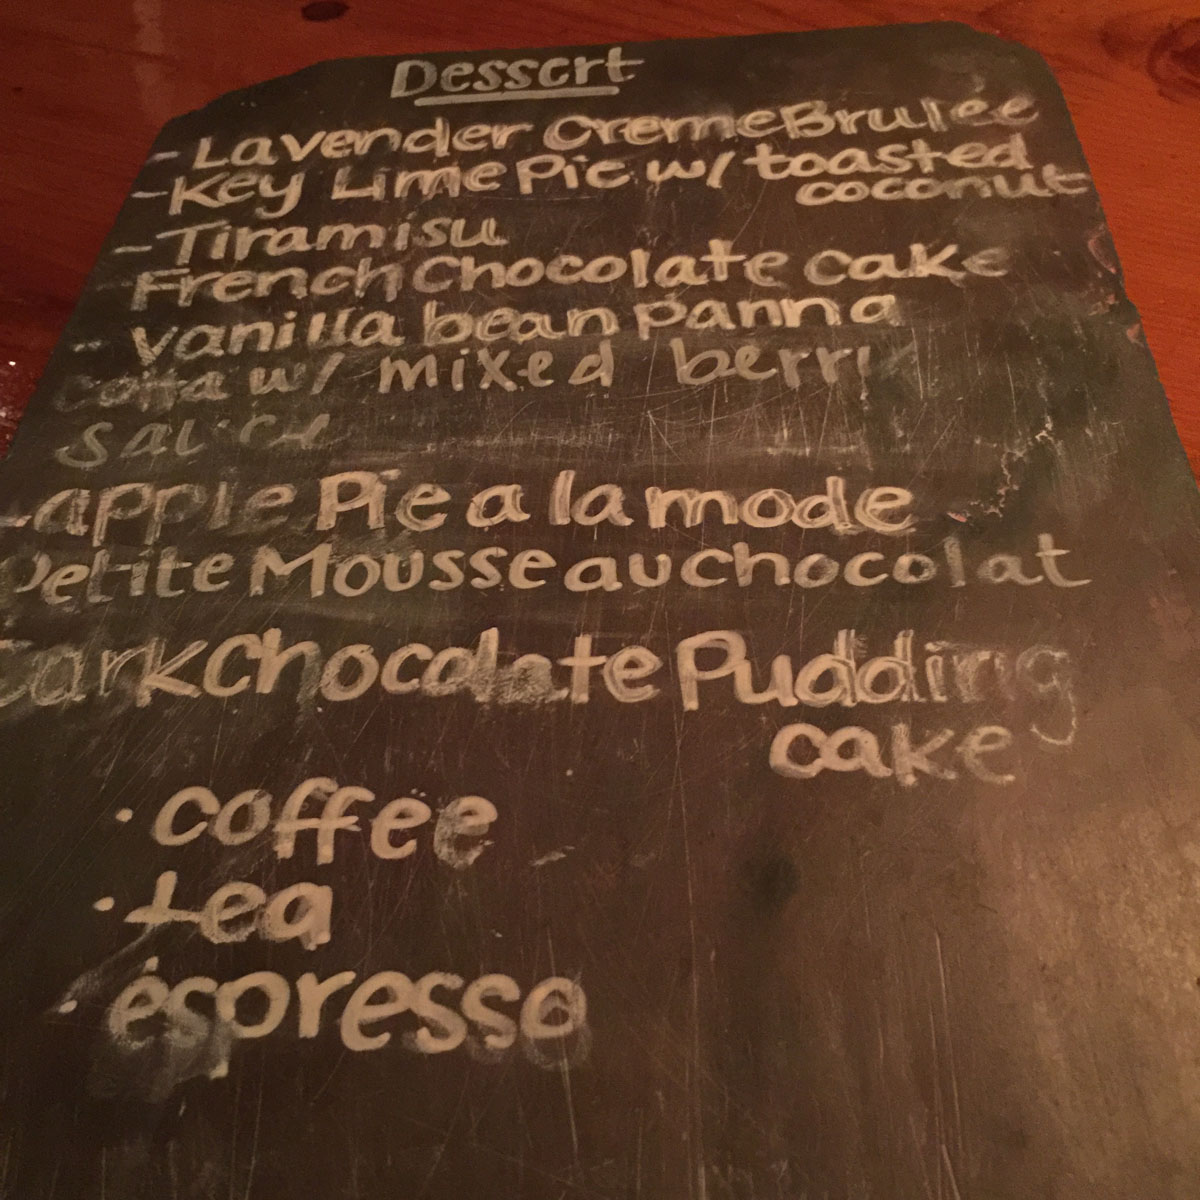 Dessert
- Lavender Creme Brulée
- Key Lime Pie w/ toasted
coconut
- Tiramisu
French Chocolate cake
- vanilla bean panna
cotta w/ mixed berri
sauce
- apple Pie a la mode
Petite Mousse au chocolat
Dark Chocolate Pudding
cake
· coffee
· tea
· éspresso